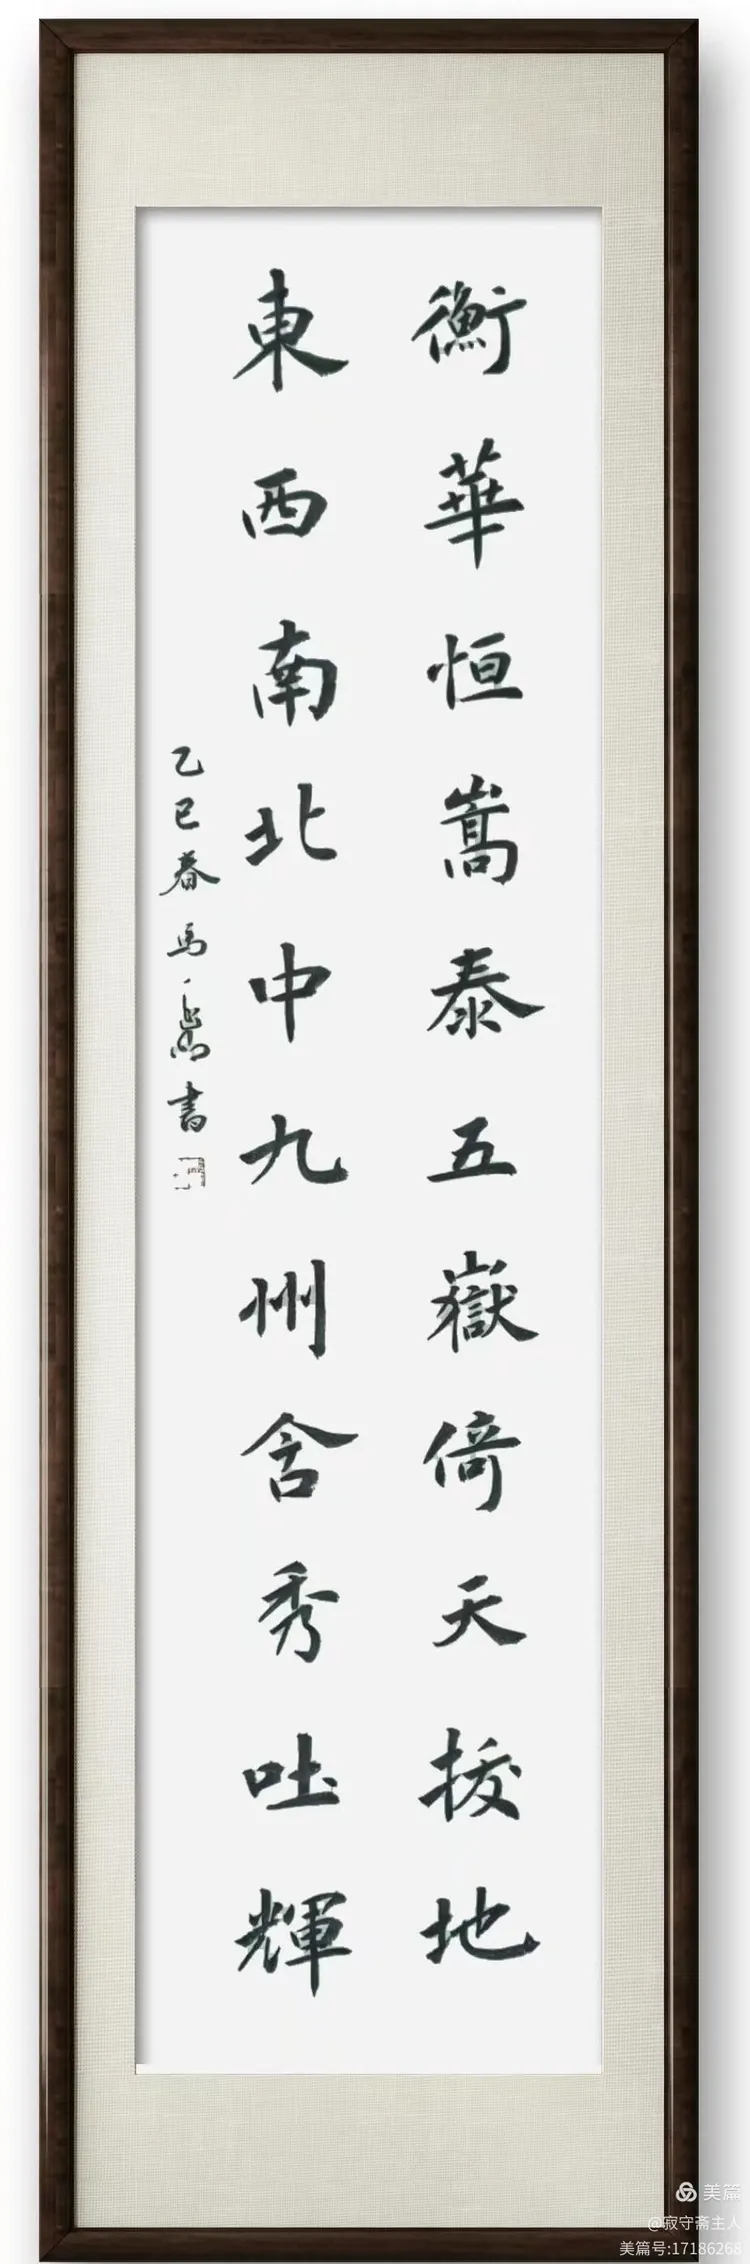 衡華恒嵩泰五嶽倚天拔地
東西南北中九州含秀吐輝
乙巳春馬一嵩書
美篇
@寂守斋主人
美篇号:17186268